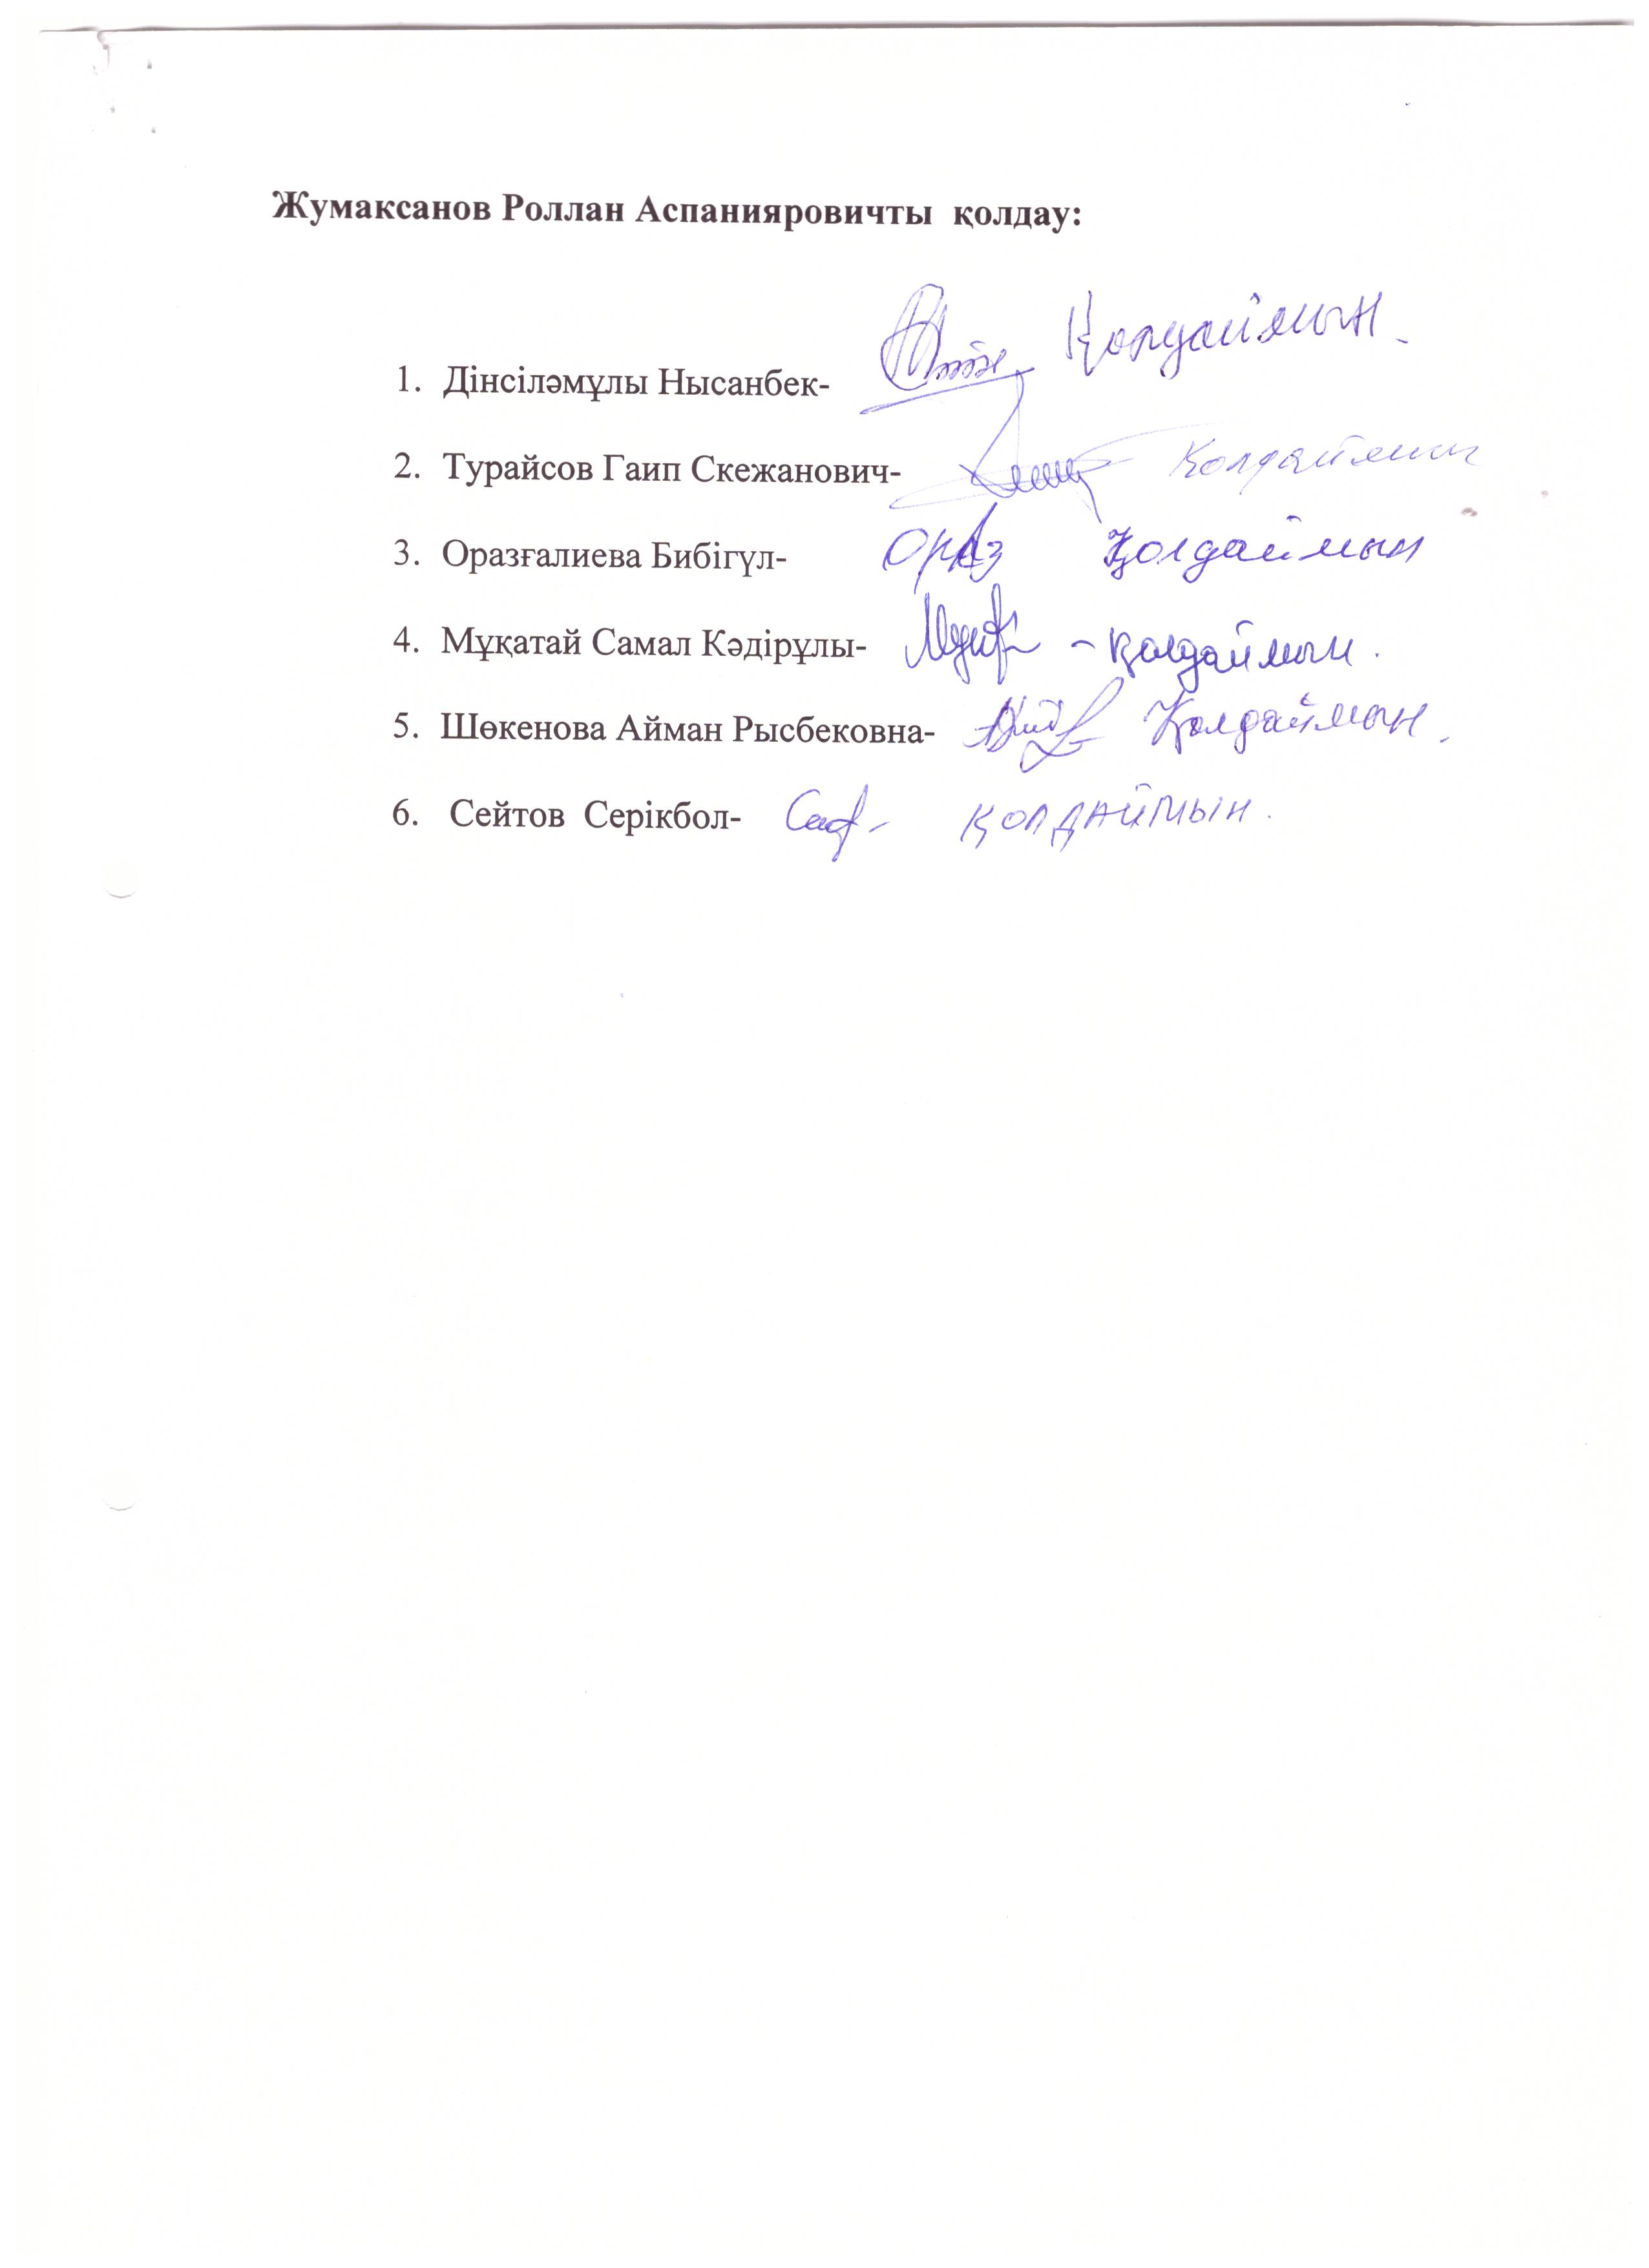 Жумаксанов Роллан Аспанияровичты қолдау:
1. Дінсіләмұлы Нысанбек- Қолдаймын.
2. Турайсов Гаип Скежанович- Қолдаймын
3. Оразғалиева Бибігүл- Ораз Қолдаймын
4. Мұқатай Самал Кәдірұлы- - қолдаймын.
5. Шөкенова Айман Рысбековна- Қолдаймын.
6. Сейтов Серікбол- қолдаймын.